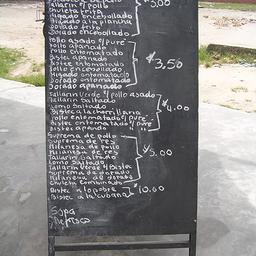 Tallarin c/ pollo
Milaneta frita
Higado encebollado
Higado a la plancha
Pollado frito
Dorado encebollado
$3,00
Pollo asado c/ puré
Pollo apanado
Pollo entomatado
Bistec apanado
Bistec entomatado
Pollo encebollado
Higado entomatado
Dorado entomatado
Dorado apanado
$3,50
Tallarin Verde c/ pollo asado
Tallarin Saltado
Lomo Saltado
Bistec a la chorrillana
Pollo entomatado c/ puré
Bistec entomatado c/ puré
Bistec apanado " "
$4,00
Suprema de pollo
Suprema de res
Milanesa de pollo
Milanesa de res
Tallarin Saltado
Lomo Saltado
Tallarin Verde c/ Bistec
Suprema de dorado
Milanesa de dorado
Chuleta Combinado
$5,00
Bistec a lo pobre
Bistec a la cubana
$10,00
Sopa